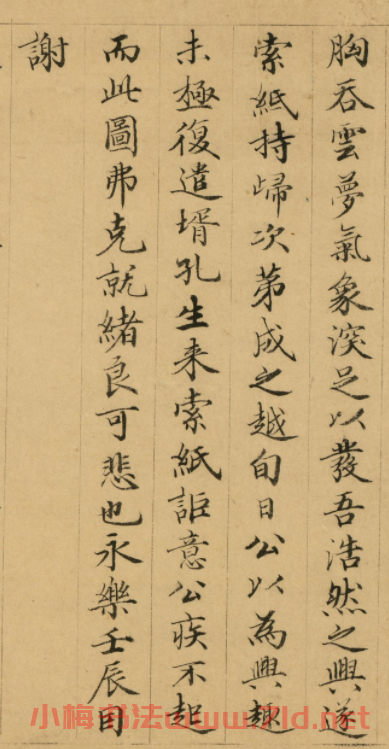 胸吞雲夢氣象溪足以發吾浩然之興遂
索紙持歸次第成之越旬日公以為興趣
未極復遣壻孔生来索紙詎意公疾不起
而此圖弗克就緒良可悲也永樂壬辰目
謝
小梅书法www.9ld.net